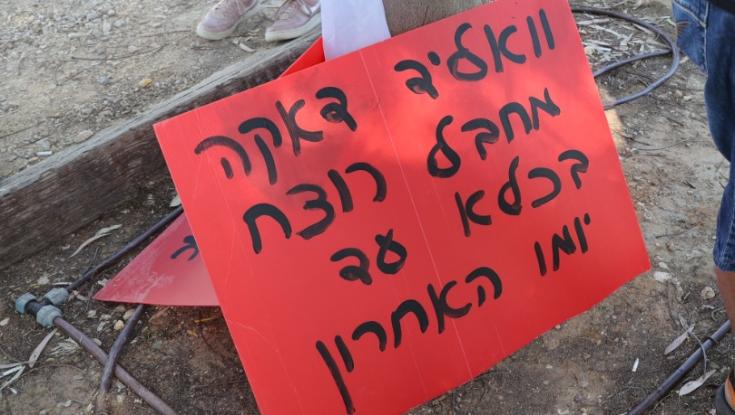 וואליד דאקה
מחבל רוצח
בכלא עד
יומו האחרון
ה